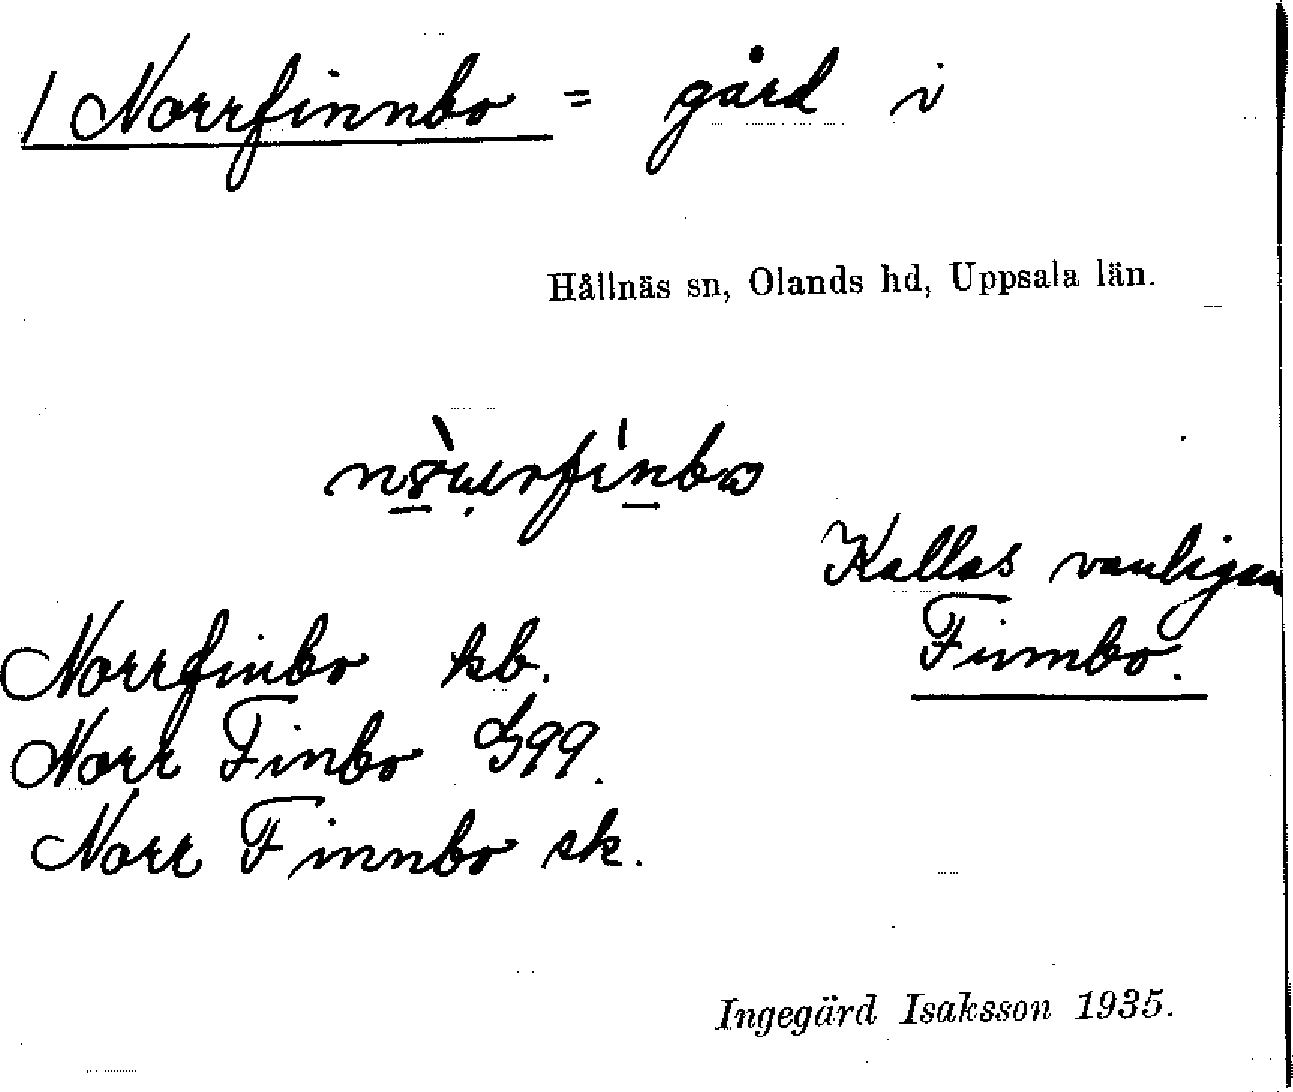 / Norrfinnbo = gård i
Hållnäs sn, Olands hd, Uppsala län.
Kallas vanligen
Finnbo.
Norrfinbo kb.
Norr Finbo G99.
Norr Finnbo sk.
Ingegärd Isaksson 1935.